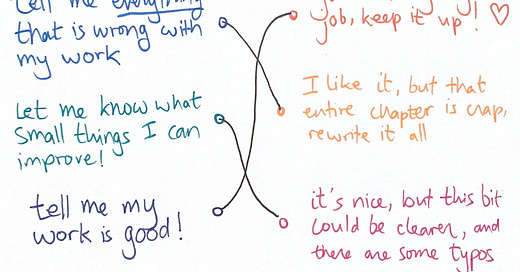 tell me everything
that is wrong with
my work
job, keep it up! ♡
Let me know what
small things I can
improve!
I like it, but that
entire chapter is crap,
rewrite it all
tell me my
work is good!
it's nice, but this bit
could be clearer, and
there are some typos